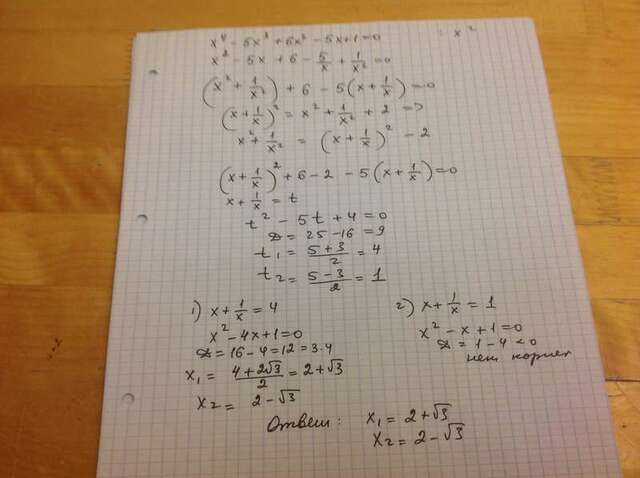 x⁴ - 5x³ + 6x² - 5x + 1 = 0 : x²
x² - 5x + 6 - 5/x + 1/x² = 0
(x² + 1/x²) + 6 - 5(x + 1/x) = 0
(x + 1/x)² = x² + 1/x² + 2 =>
x² + 1/x² = (x + 1/x)² - 2
(x + 1/x)² + 6 - 2 - 5(x + 1/x) = 0
x + 1/x = t
t² - 5t + 4 = 0
D = 25 - 16 = 9
t₁ = (5 + 3)/2 = 4
t₂ = (5 - 3)/2 = 1
1) x + 1/x = 4
x² - 4x + 1 = 0
D = 16 - 4 = 12 = 3·4
x₁ = (4 + 2√3)/2 = 2 + √3
x₂ = 2 - √3
2) x + 1/x = 1
x² - x + 1 = 0
D = 1 - 4 < 0
нет корней
Ответ: x₁ = 2 + √3
x₂ = 2 - √3